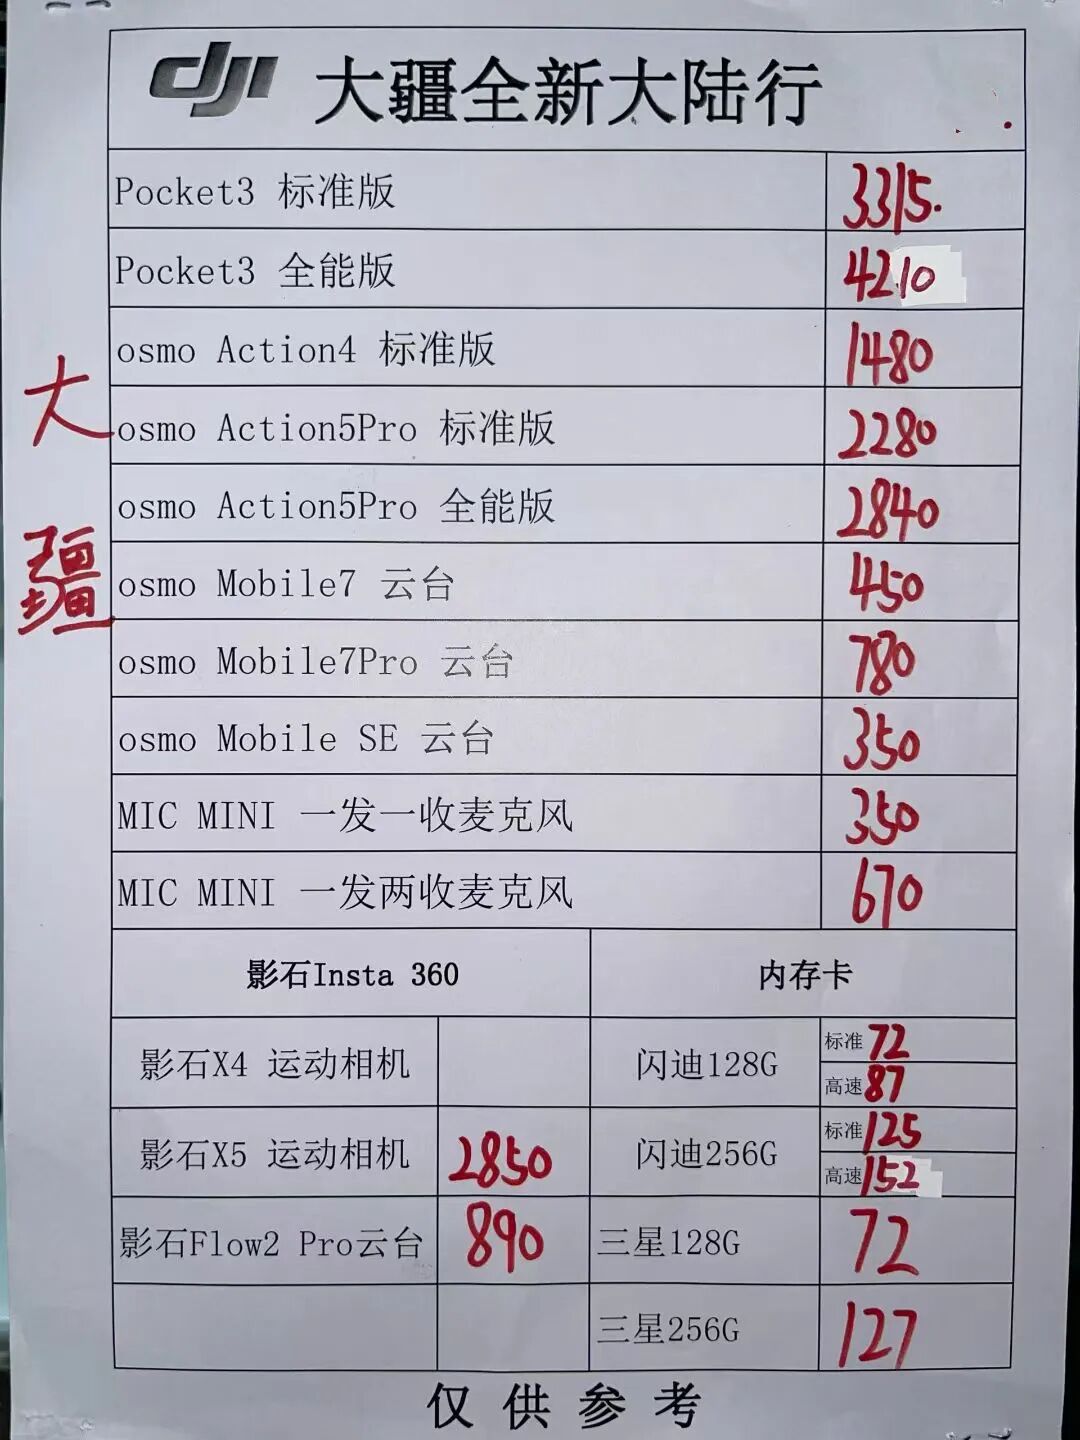 dji 大疆全新大陆行
Pocket3 标准版 3315.
Pocket3 全能版 4210
osmo Action4 标准版 1480
osmo Action5Pro 标准版 2280
osmo Action5Pro 全能版 2840
osmo Mobile7 云台 450
osmo Mobile7Pro 云台 780
osmo Mobile SE 云台 350
MIC MINI 一发一收麦克风 350
MIC MINI 一发两收麦克风 670
大疆
影石Insta 360 内存卡
影石X4 运动相机 闪迪128G 标准 72
高速 87
影石X5 运动相机 2850 闪迪256G 标准 125
高速 152
影石Flow2 Pro云台 890 三星128G 72
三星256G 127
仅供参考